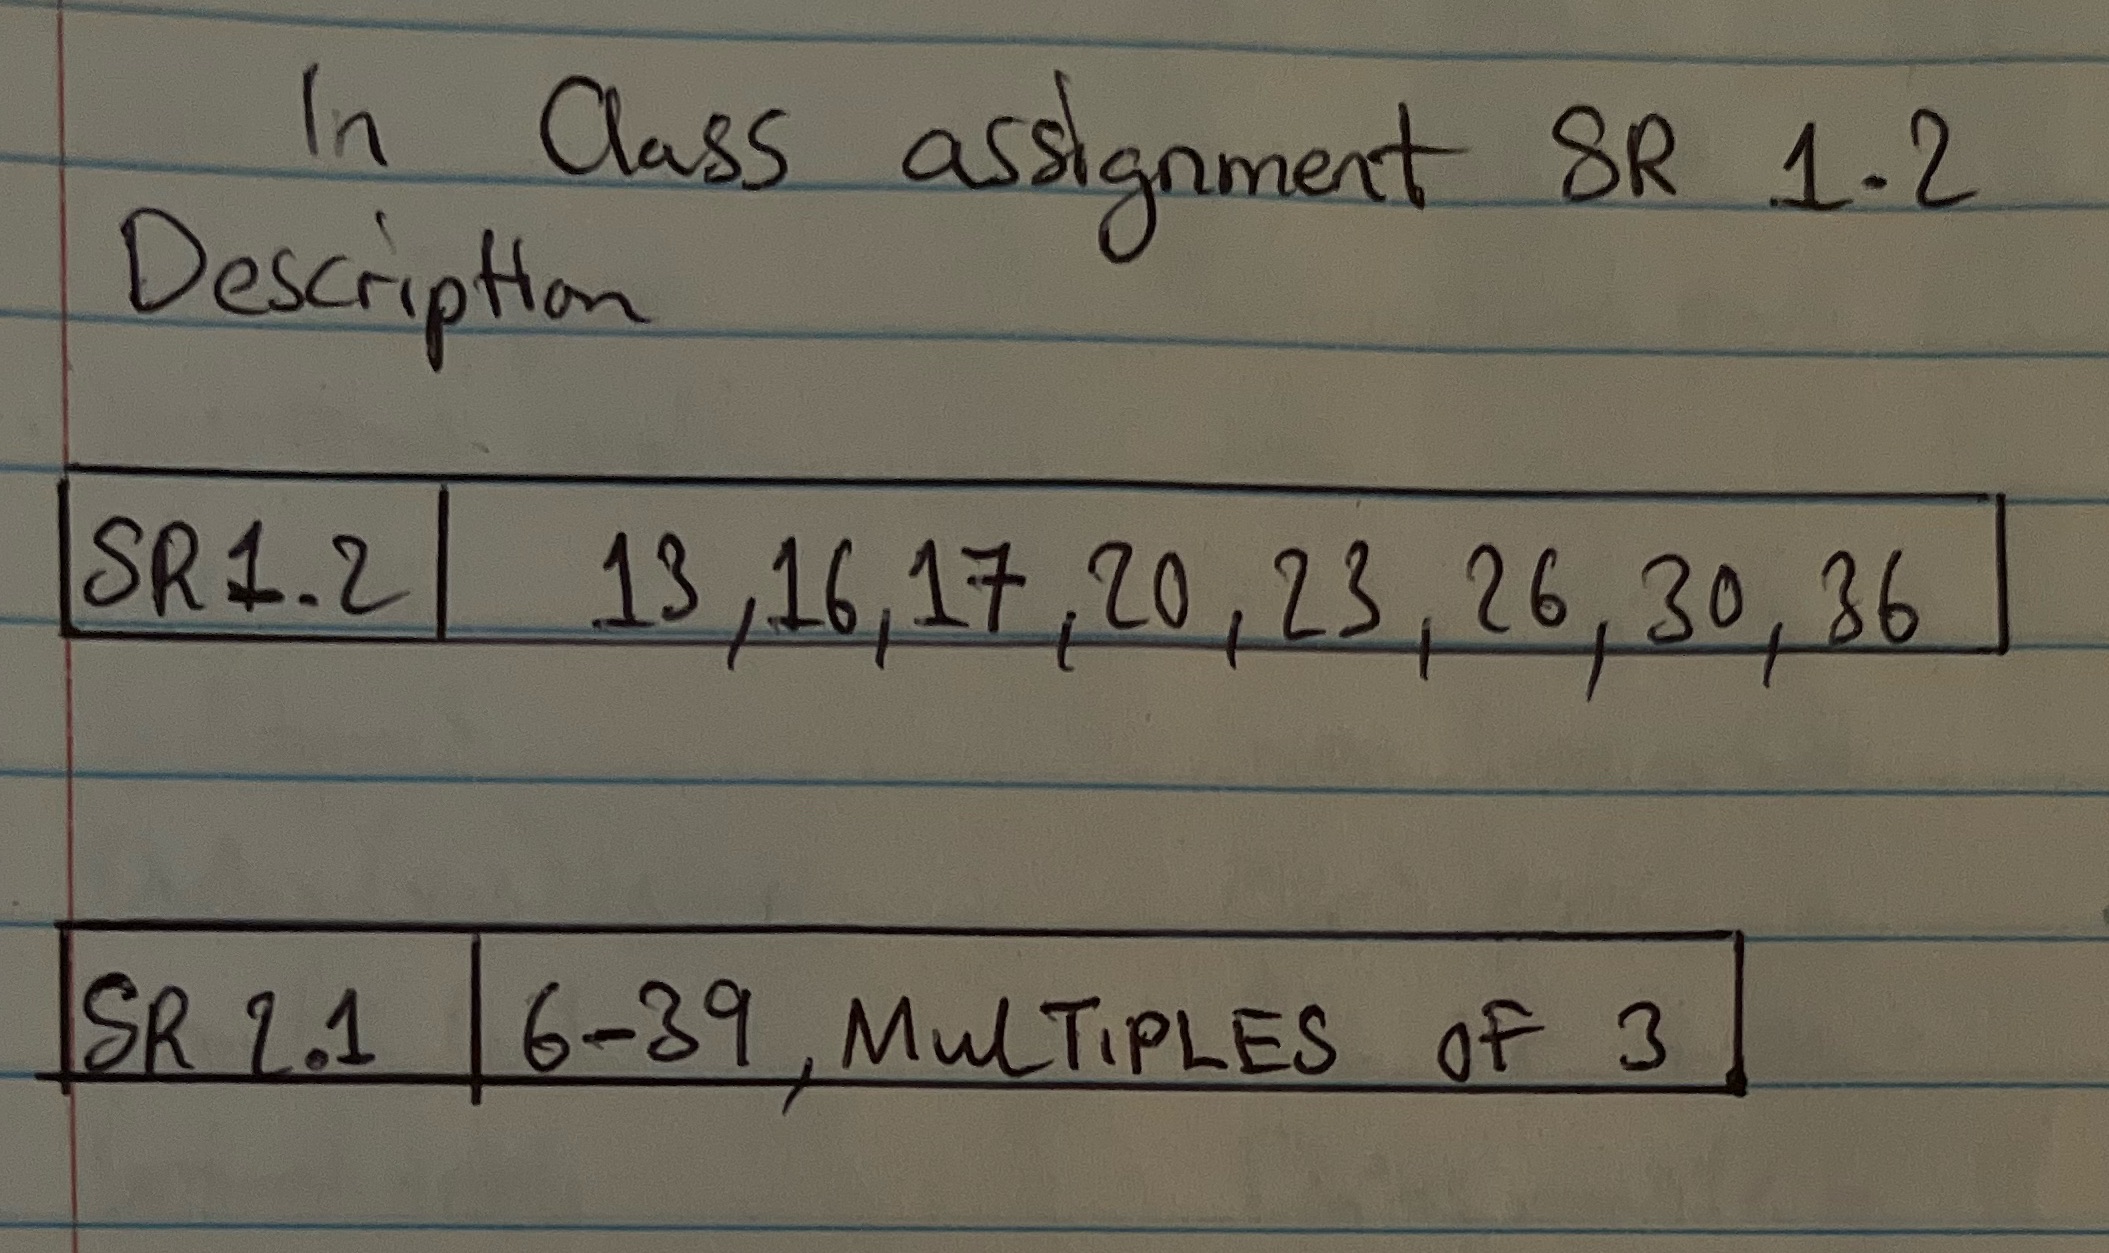 In Class assignment SR 1.2
Description
SR 1.2 13, 16, 17, 20, 23, 26, 30, 36
SR 2.1 6-39, MULTIPLES OF 3